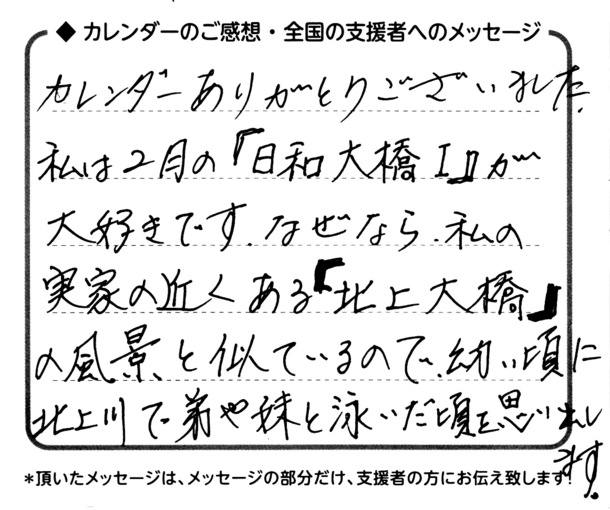 ◆ カレンダーのご感想・全国の支援者へのメッセージ
カレンダーありがとうございました.
私は2月の『日和大橋I』が
大好きです.なぜなら.私の
実家の近くある『北上大橋』
の風景と似ているので.幼い頃に
北上川で弟や妹と泳いだ頃を思い出し
ます.
*頂いたメッセージは、メッセージの部分だけ、支援者の方にお伝え致します。